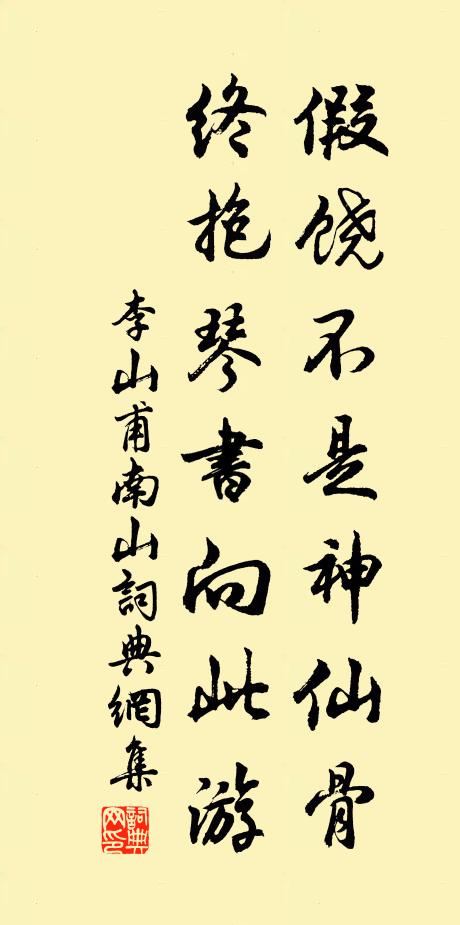 假饶不是神仙骨
终抱琴書向此游
李山甫南山詞典網集
詞典网印